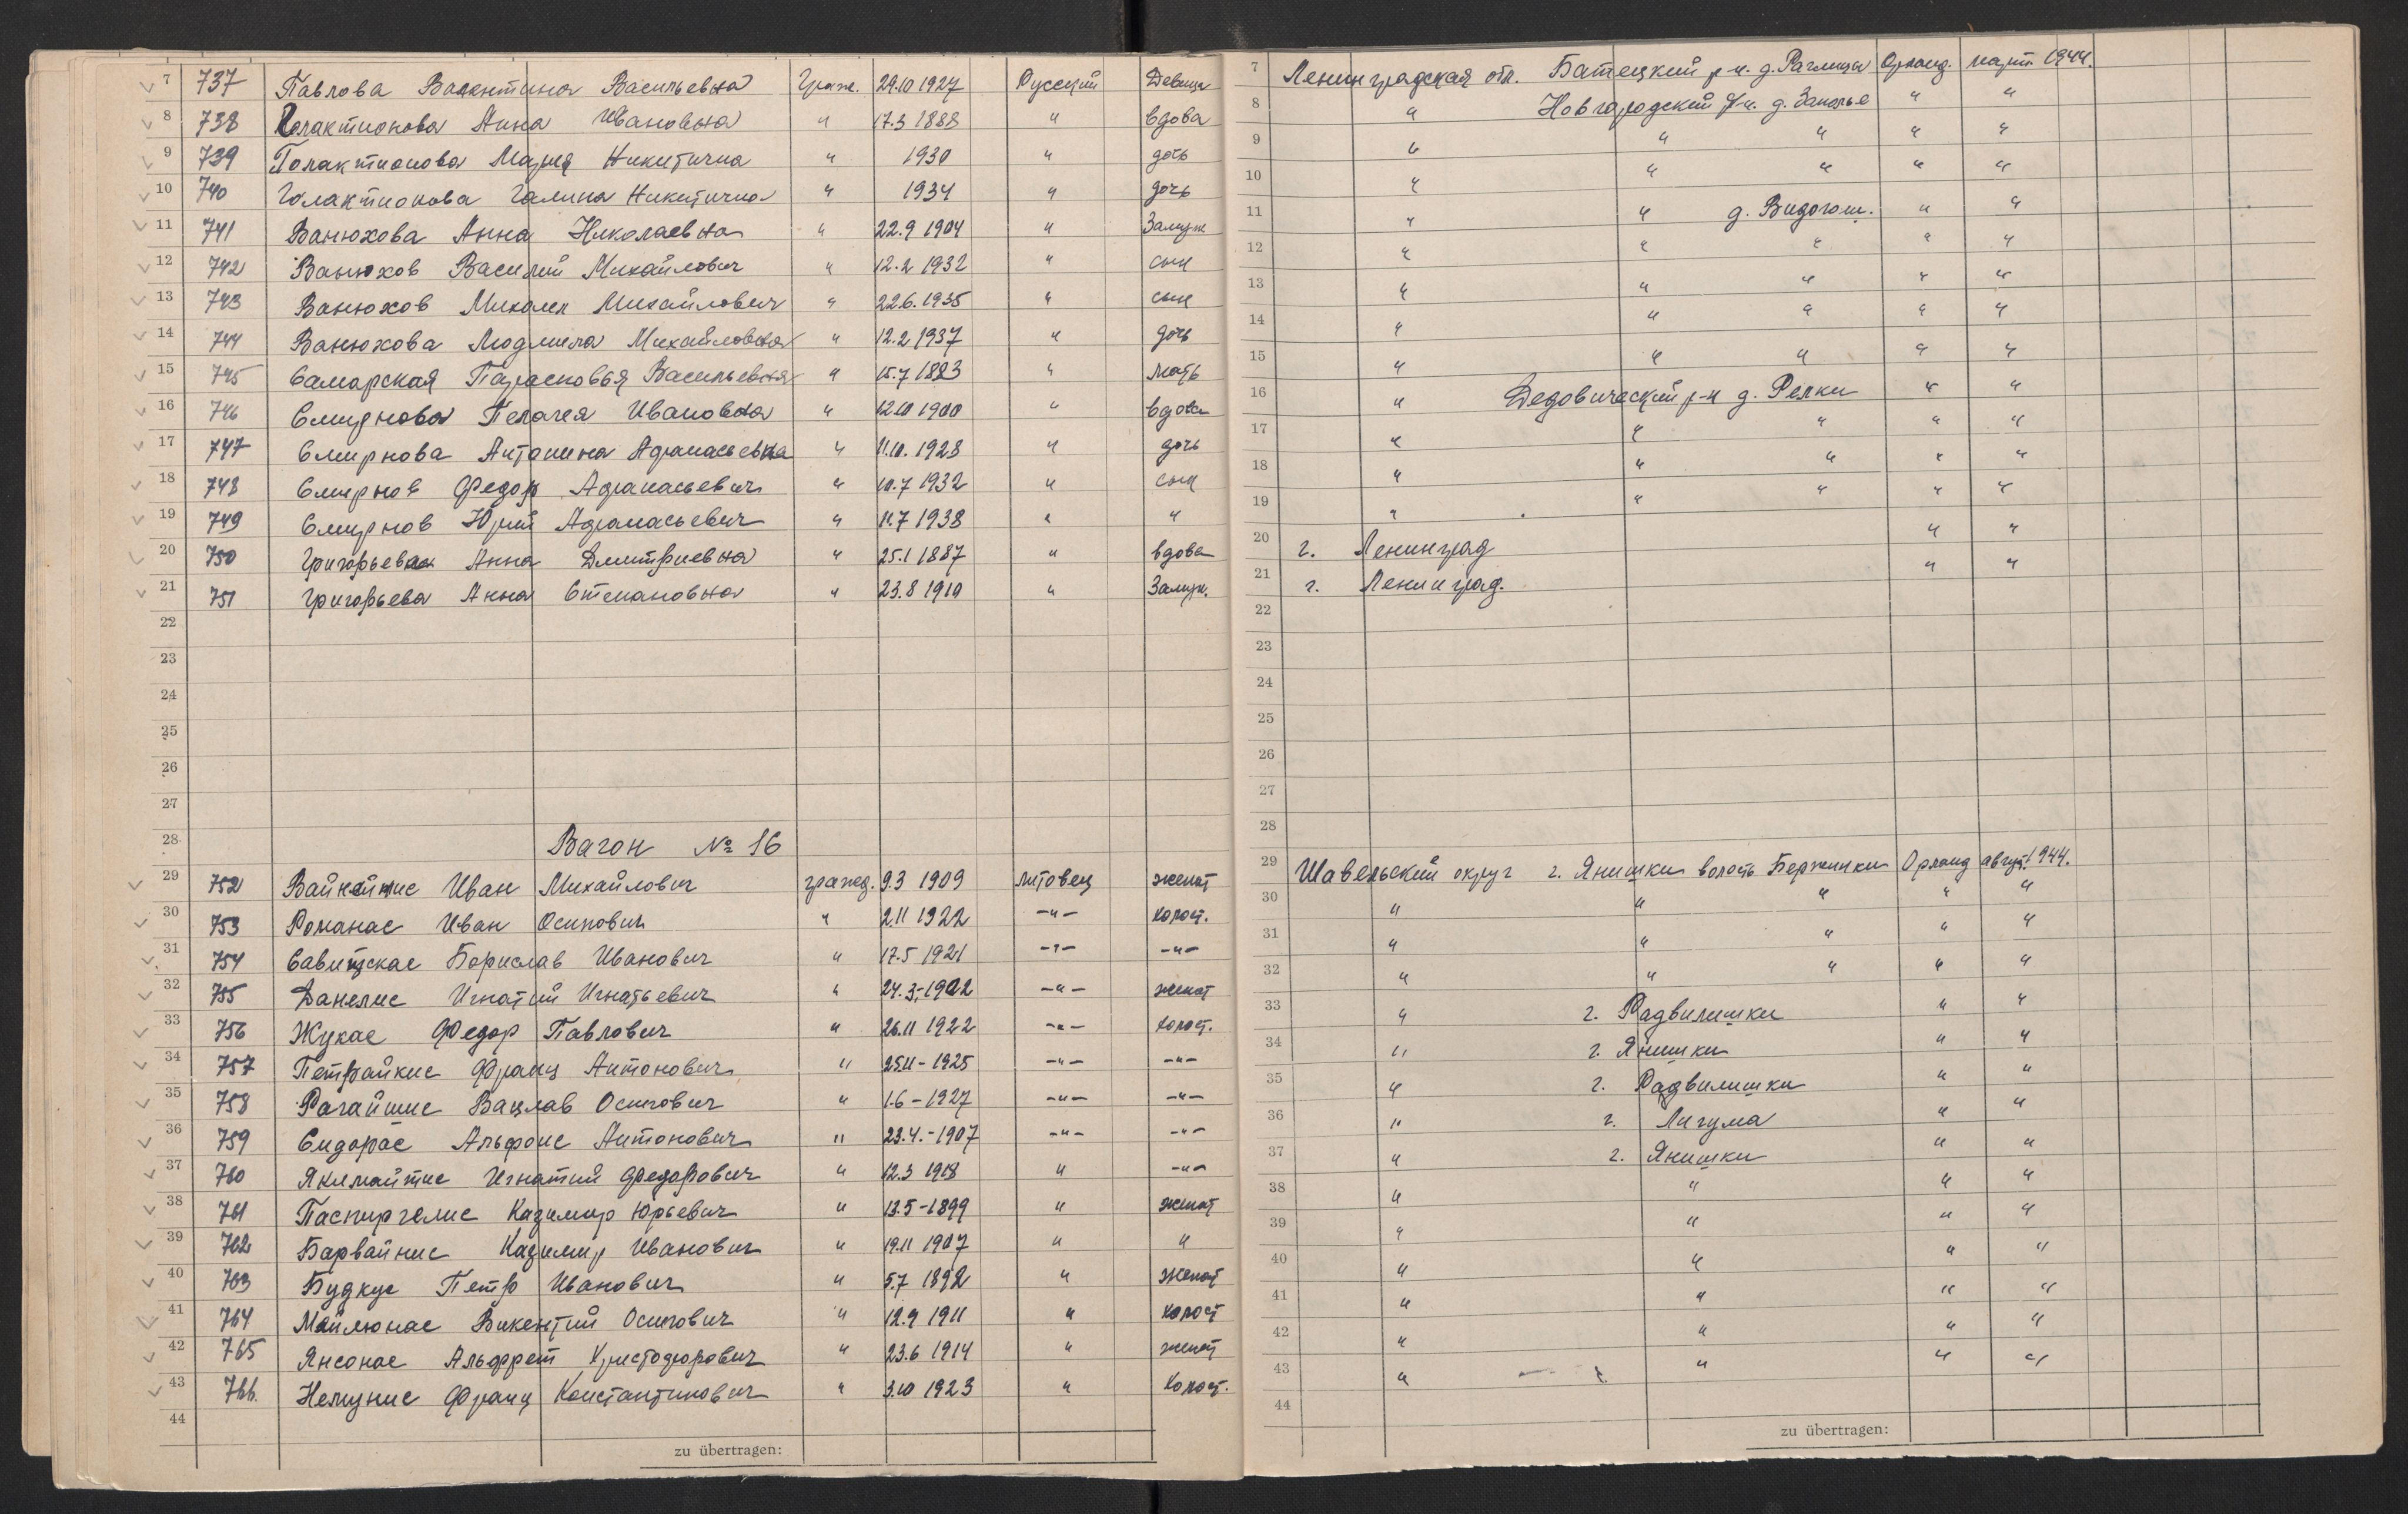 7 737 Павлова Валентина Васильевна Граж. 29.10 1927 Русский Девица
8 738 Голактионова Анна Ивановна " 17.3 1888 " вдова
9 739 Голактионова Мария Никитична " 1930 " дочь
10 740 Голактионова Галина Никитична " 1934 " дочь
11 741 Ванюхова Анна Николаевна " 22.9 1904 " Замуж
12 742 Ванюхов Василий Михайлович " 12.2 1932 " сын
13 743 Ванюхов Михаил Михайлович " 22.6.1935 " сын
14 744 Ванюхова Людмила Михайловна " 12.2 1937 " дочь
15 745 Самарская Парасковья Васильевна " 15.7 1883 " мать
16 746 Смирнова Пелагея Ивановна " 12.10 1900 " вдова
17 747 Смирнова Антонина Афанасьевна " 11.10.1928 " дочь
18 748 Смирнов Федор Афанасьевич " 10.7 1932 " сын
19 749 Смирнов Юрий Афанасьевич " 11.7 1938 " "
20 750 Григорьева Анна Дмитриевна " 25.1 1887 " вдова
21 751 Григорьева Анна Степановна " 23.8 1910 " Замуж.
22
23
24
25
26
27
28 Вагон № 16
29 752 Вайнейкис Иван Михайлович гражд. 9.3 1909 литовец женат
30 753 Романас Иван Осипович " 2.11 1922 -"- холост.
31 754 Савицскас Борислав Иванович " 17.5 1921 -"- -"-
32 755 Данелис Игнатий Игнатьевич " 24.3-1902 -"- женат
33 756 Жукас Федор Павлович " 26.11 1922 -"- холост.
34 757 Петрайкис Франц Антонович " 25.11-1925 -"- -"-
35 758 Рагайшис Вацлав Осипович " 1.6-1927 -"- -"-
36 759 Сидорас Альфонс Антонович " 23.4.-1907 -"- -"-
37 760 Якимайтис Игнатий Федорович " 12.3 1918 " -"-
38 761 Паспиргелис Казимир Юрьевич " 13.5-1899 " женат
39 762 Барвайнис Казимир Иванович " 19.11 1907 " "
40 763 Будкус Петр Иванович " 5.7 1892 " женат
41 764 Майлюнас Викентий Осипович " 12.9 1911 " холост
42 765 Янсонас Альфрет Христофорович " 23.6 1914 " женат
43 766. Немунис Франц Константинович " 3.10 1923 " Холост.
44
zu übertragen:
7 Ленинградская обл. Батецкий р-н. д. Раглицы Орланд. март 1944.
8 " Новгородский р-н. д. Заполье " "
9 " " " " "
10 " " " " "
11 " " д. Видогощ. " "
12 " " " " "
13 " " " " "
14 " " " " "
15 " " " " "
16 " Дедовический р-н д. Релки " "
17 " " " " "
18 " " " " "
19 " " " " "
20 г. Ленинград " "
21 г. Ленинград. " "
22
23
24
25
26
27
28
29 Шавельский округ г. Янишки волость Бержинки Орланд август 1944.
30 " " " " "
31 " " " " "
32 " " " " "
33 " г. Радвилишки " "
34 " г. Янишки " "
35 " г. Радвилишки " "
36 " г. Лигума " "
37 " г. Янишки " "
38 " " " "
39 " " " "
40 " " " "
41 " " " "
42 " " " "
43 " " " "
44
zu übertragen: